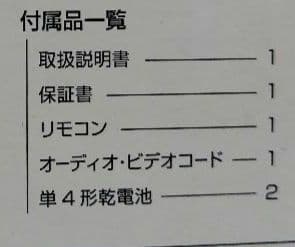 付属品一覧
取扱説明書 1
保証書 1
リモコン 1
オーディオ・ビデオコード 1
単4形乾電池 2